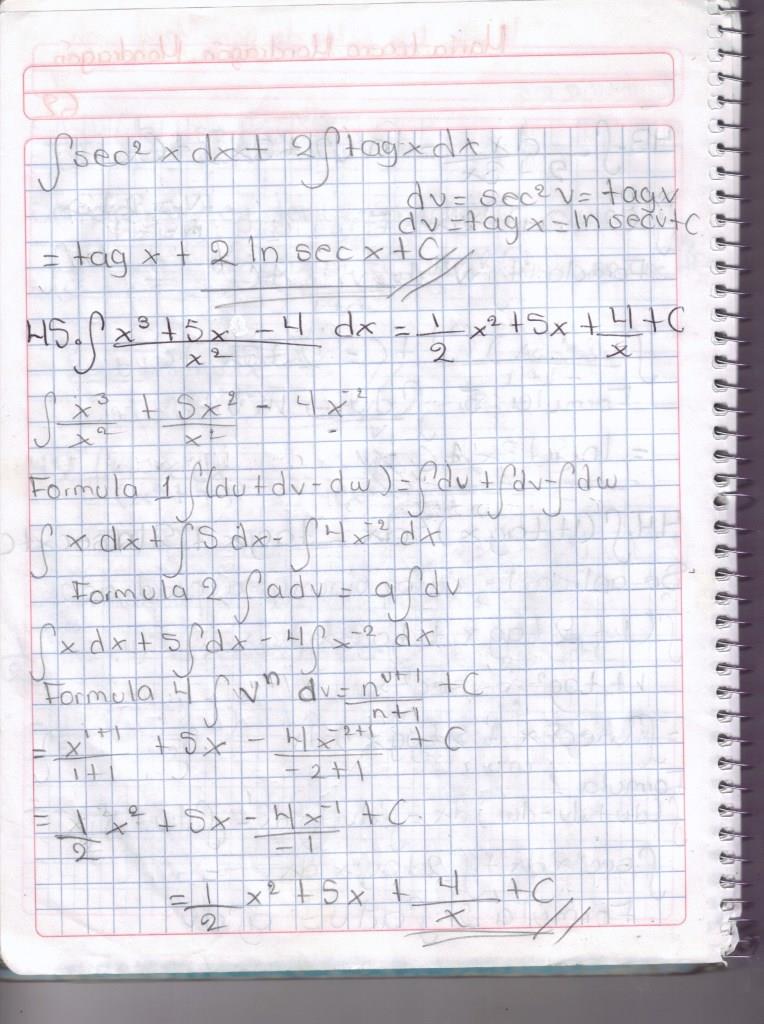 ∫sec² x dx + 2∫tag x dx
dv = sec² v = tag v
dv = tag x = ln sec v + C
= tag x + 2 ln sec x + C
45. ∫ (x³ + 5x - 4)/x² dx = 1/2 x² + 5x + 4/x + C
∫ x³/x² + 5x²/x² - 4x⁻²
Formula 1 ∫(du + dv - dw) = ∫du + ∫dv - ∫dw
∫ x dx + ∫5 dx - ∫4x⁻² dx
Formula 2 ∫adv = a∫dv
∫x dx + 5∫dx - 4∫x⁻² dx
Formula 4 ∫vⁿ dv = n^(v+1)/(n+1) + C
= x^(1+1)/(1+1) + 5x - 4x^(-2+1)/(-2+1) + C
= 1/2 x² + 5x - 4x⁻¹/-1 + C
= 1/2 x² + 5x + 4/x + C